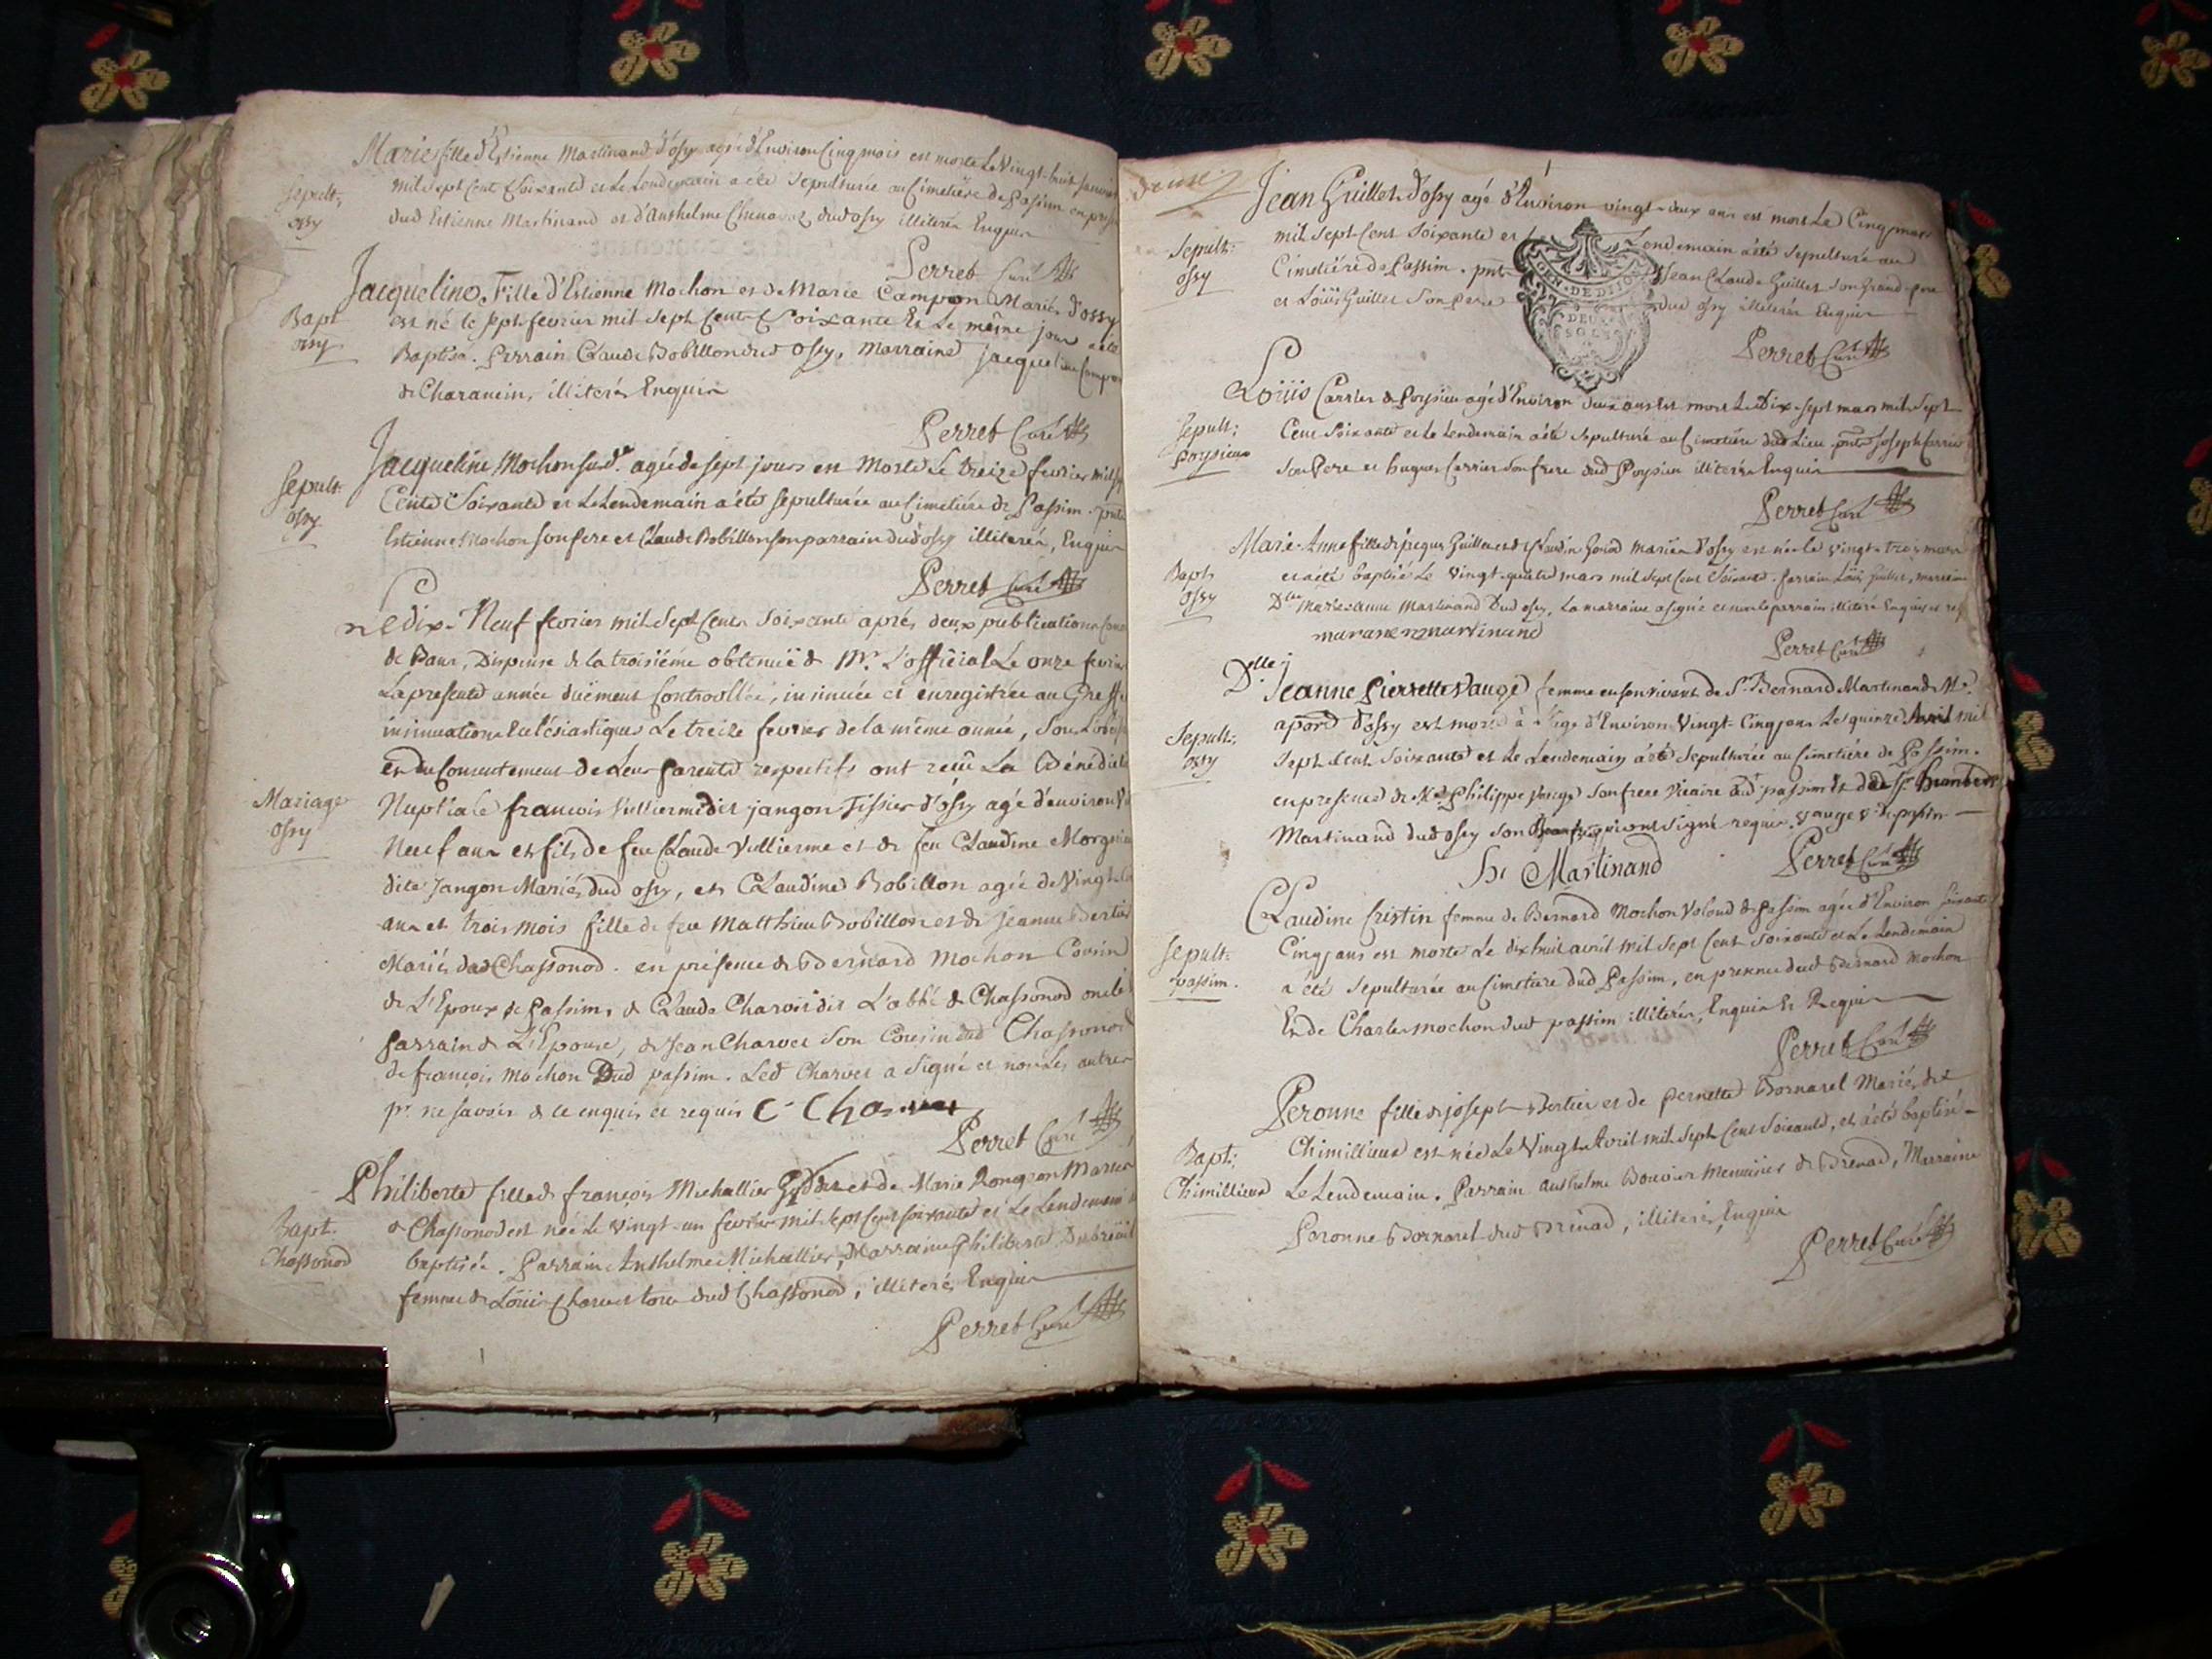 Marie fille d'Estienne Martinand d'ossy agée d'Environ Cinq mois est morte Le Vingt-huit
Sepult:
ossy
mil sept Cent Soixante et Le Lendemain a eté Sepulturée au Cimetiére de Passim en
dud Estienne Martinand et d'Anthelme dud ossy illiterés Enquis
Perret Curé
Jacqueline Fille d'Estienne Mochon et de Marie Campon Mariés d'ossy
Bapt
ossy
est né le sept fevrier mil sept Cent Soixante Et Le même jour a eté
Baptisé. Parrain Claude Bobillon dud ossy, Marraine jacqueline Campon
de Charancin, illiterés Enquis
Perret Curé
Jacqueline Mochon susd.e agée de sept jours est Morte Le treize fevrier mil
Sepult:
ossy
Cents Soixante et Le Lendemain a été sepulturée au Cimetiére de Passim.
Estienne Mochon son Pere et Claude Bobillon son parrain dud ossy illiterés, Enquis
Perret Curé
Le dix-Neuf fevrier mil sept Cents Soixante aprés deux publications
de Bans, Dispense de la troisiéme obtenuë de Mr. L'official Le onze fevrier
La presente année duëment Controollée, insinuée et enregistrée au Greffe
insinuations Eclésiastiques Le treize fevrier de la même année,
et du Consentement de Leurs Parents respectifs ont reçû La Bénédict
Mariage
ossy
Nuptiale françois Vullierme dit jangon Tissier d'ossy agé d'environ
Neuf ans et fils de feu Claude Vullierme et de feu Claudine
dite Jangon Mariés dud ossy, et Claudine Bobillon agée de Vingt
ans et trois mois fille de feu Matthieu Bobillon et de Jeanne Bertier
Mariés dud Chassonod. en présence de Bernard Mochon Cousin
de L'Epoux de Passim, de Claude Charvet dit L'abbé de Chassonod oncle
Parrain de L'Epouse, de Jean Charvet Son Cousin dud Chassonod
de françois Mochon Dud passim. Led Charvet a Signé et non Les autres
pr. ne savoir de ce enquis et requis C Charvet
Perret Curé
Philiberte fille de françois Michallier et de Marie Rongeon Mariés
Bapt.
Chassonod
de Chassonod est née Le vingt-un fevrier mil sept Cent soixante et Le Lendemain
baptisée. Parrain Anthelme Michallier, Marraine Philiberte Dubreüil
femme de Loüis Charvet dud Chassonod, illiterés Enquis
Perret Curé
Jean Guillet d'ossy agé d'Environ vingt-deux ans est mort Le Cinq mars
Sepult:
ossy
mil sept Cent Soixante et Le Lendemain a été sepulturé au
Cimetiére de Passim. pnts Jean Claude Guillet son Grand-pere
et Loüis Guillet Son Pere dud ossy illiterés Enquis
GEN. DE DIJON
DEUX
SOLS
Perret Curé
Loüis Carrier de Poysieu agé d'Environ deux ans est mort Le Dix-sept mars mil sept
Sepult:
poysieu
Cent Soixante et le Lendemain a été sepulturé au Cimetiére dud Lieu. pnts Joseph Carrier
Son Pere et hugues Carrier son frere dud Poysieu illiterés Enquis
Perret Curé
Marie-Anne fille de jacques Guillet et de Claudine Mariés d'ossy est née le vingt-trois mars
Bapt
ossy
et a été baptisé Le Vingt-quatre mars mil sept Cent Soixante. Parrain Loüis Guillet, marraine
Dlle. Marie-anne Martinand Dud ossy, La marraine a signé et non le parrain illiteré Enquis et req
marianne martinand
Perret Curé
Dlle. Jeanne Pierrette Vauge femme en son vivant de Sr. Bernard Martinand
Sepult:
ossy
d'ossy est morte à L'age d'Environ Vingt-Cinq ans Le quinze Avril mil
sept Cent Soixante et Le Lendemain a été Sepulturée au Cimetiére de Passim.
en presence de Philippe Vauge son frere Vicaire dud passim et de Sr. humbert
Martinand dud ossy son Beaufrere qui ont signé requis. Vauge v. de passin
H. Martinand
Perret Curé
Claudine Cristin femme de Bernard Mochon Voloud de Passim agée d'Environ soixante
Sepult:
passim.
Cinq ans est morte Le dix huit avril mil sept Cent soixante et Le Lendemain
a été sepulturée au Cimetiére dud Passim, en presence dud Bernard Mochon
Et de Charles mochon dud passim illiterés, Enquis Et Requis
Perret Curé
Peronne fille de joseph Bertier et de pernette Bornarel Mariés de
Bapt:
Chimillieux
Chimillieux est née Le Vingt Avril mil sept Cent Soixante, et a été baptisé
Le Lendemain. Parrain Anthelme Bouvier Menuisier de Brenad, Marraine
Peronne Bornarel dud Brénad, illiterés, Enquis
Perret Curé